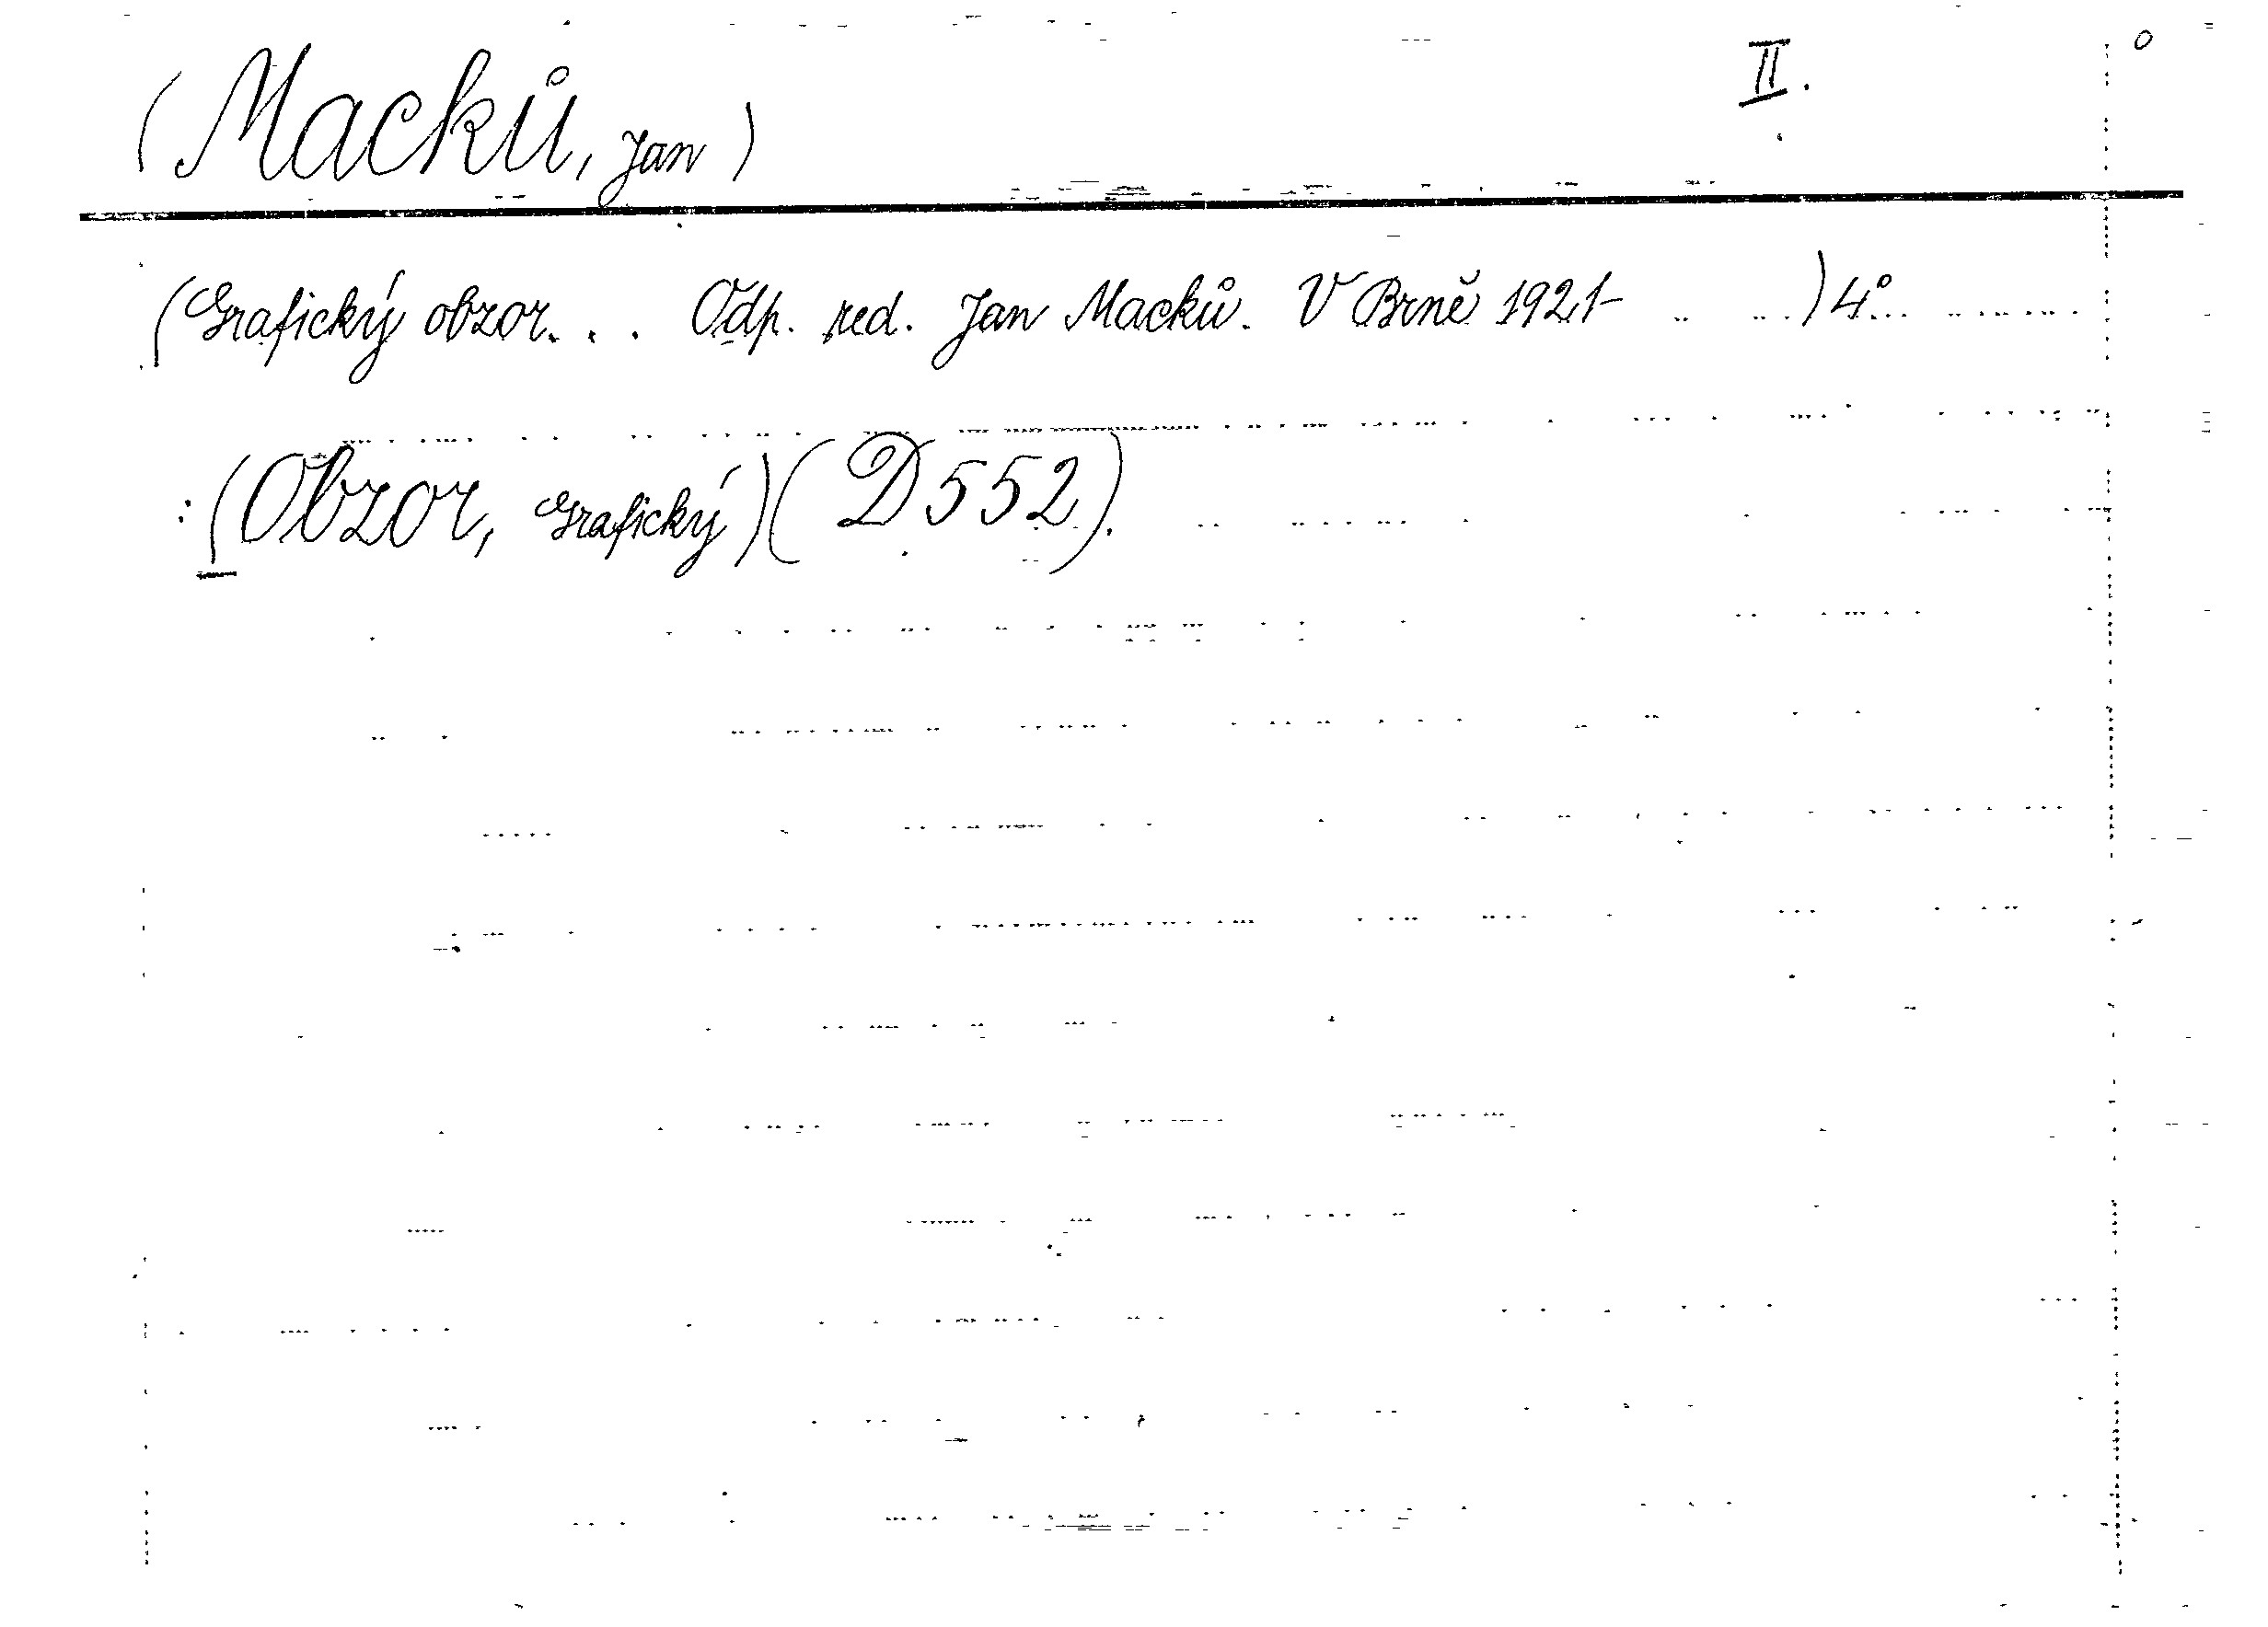 (Macků, Jan) II.
(Grafický obzor. . . Odp. red. Jan Macků. V Brně 1921- ) 4°
: (Obzor, Grafický) (D 552).